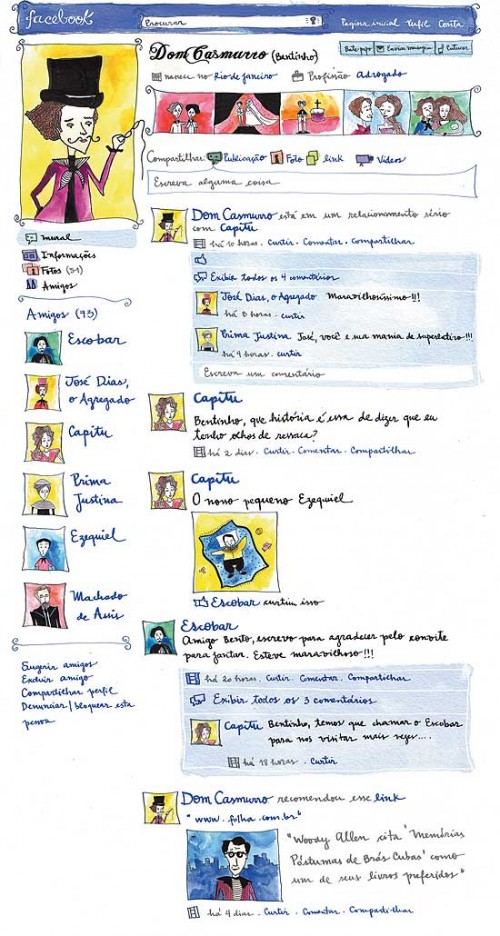 facebook
Procurar
Página inicial Perfil Conta
Dom Casmurro (Bentinho)
Bate papo Enviar mensagem Cutucar
nasceu no Rio de Janeiro Profissão Advogado
Compartilhar: Publicação Foto link Vídeos
Escreva alguma coisa
mural
Informações
Fotos (51)
Amigos
Amigos (93)
Escobar
José Dias,
o Agregado
Capitu
Prima
Justina
Ezequiel
Machado
de Assis
Sugerir amigos
Excluir amigo
Compartilhar perfil
Denunciar/bloquear esta
pessoa
Dom Casmurro está em um relacionamento sério
com Capitu
há 10 horas. Curtir. Comentar. Compartilhar
Exibir todos os 4 comentários
José Dias, o Agregado Maravilhosíssimo!!!
há 8 horas. curtir
Prima Justina José, você e sua mania de superlativo!!!
há 9 horas. curtir
Escreva um comentário
Capitu
Bentinho, que história é essa de dizer que eu
tenho olhos de ressaca?
há 2 dias. Curtir. Comentar. Compartilhar
Capitu
O nosso pequeno Ezequiel
Escobar curtiu isso
Escobar
Amigo Bento, escrevo para agradecer pelo convite
para jantar. Esteve maravilhoso!!!
há 20 horas. Curtir. Comentar. Compartilhar
Exibir todos os 3 comentários
Capitu Bentinho, temos que chamar o Escobar
para nos visitar mais vezes....
há 18 horas. Curtir
Dom Casmurro recomendou esse link
"www.folha.com.br"
"Woody Allen cita "Memórias
Póstumas de Brás Cubas" como
um de seus livros preferidos"
há 4 dias. Curtir. Comentar. Compartilhar